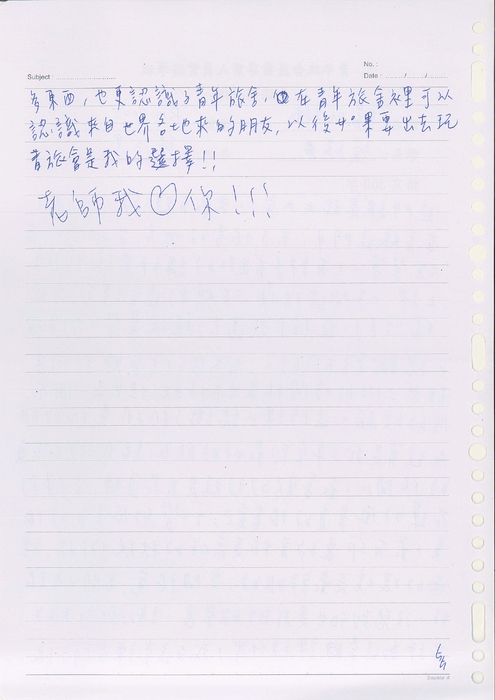 No. :
Subject :
Date : / /
多東西，也更認識了青年旅舍，在青年旅舍裡可以
認識來自世界各地來的朋友，以後如果要出去玩
青旅會是我的選擇!!
老師我♡你!!!